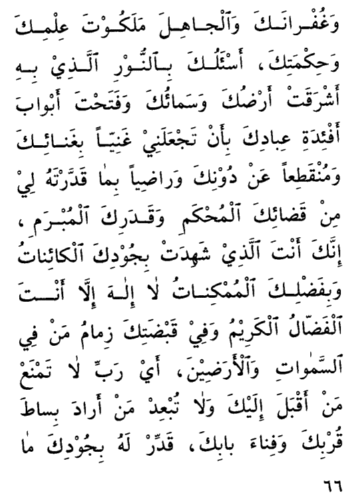 وَغُفْرانَكَ وَٱلْجاهِلَ مَلَكُوْتَ عِلْمِكَ
وَحِكْمَتِكَ، أَسْئَلُكَ بِٱلنُّوْرِ ٱلَّذِيْ بِهِ
أَشْرَقَتْ أَرْضُكَ وَسَمائُكَ وَفَتَحْتَ أَبْوابَ
أَفْئِدَةِ عِبادِكَ بِأَنْ تَجْعَلَنِيْ غَنِيّاً بِغَنائِكَ
وَمُنْقَطِعاً عَنْ دُوْنِكَ وَراضِياً بِما قَدَّرْتَهُ لِيْ
مِنْ قَضائِكَ ٱلْمُحْكَمِ وَقَدَرِكَ ٱلْمُبْرَمِ،
إِنَّكَ أَنْتَ ٱلَّذِيْ شَهِدَتْ بِجُوْدِكَ ٱلْكائِناتُ
وَبِفَضْلِكَ ٱلْمُمْكِناتُ لا إِلـٰهَ إِلَّا أَنْتَ
ٱلْفَضّالُ ٱلْكَرِيْمُ وَفِيْ قَبْضَتِكَ زِمامُ مَنْ فِي
ٱلسَّمٰواتِ وَٱلْأَرَضِيْنَ، أَيْ رَبِّ لا تَمْنَعْ
مَنْ أَقْبَلَ إِلَيْكَ وَلا تُبْعِدْ مَنْ أَرادَ بِساطَ
قُرْبِكَ وَفِناءَ بابِكَ، قَدِّرْ لَهُ بِجُوْدِكَ ما
٦٦